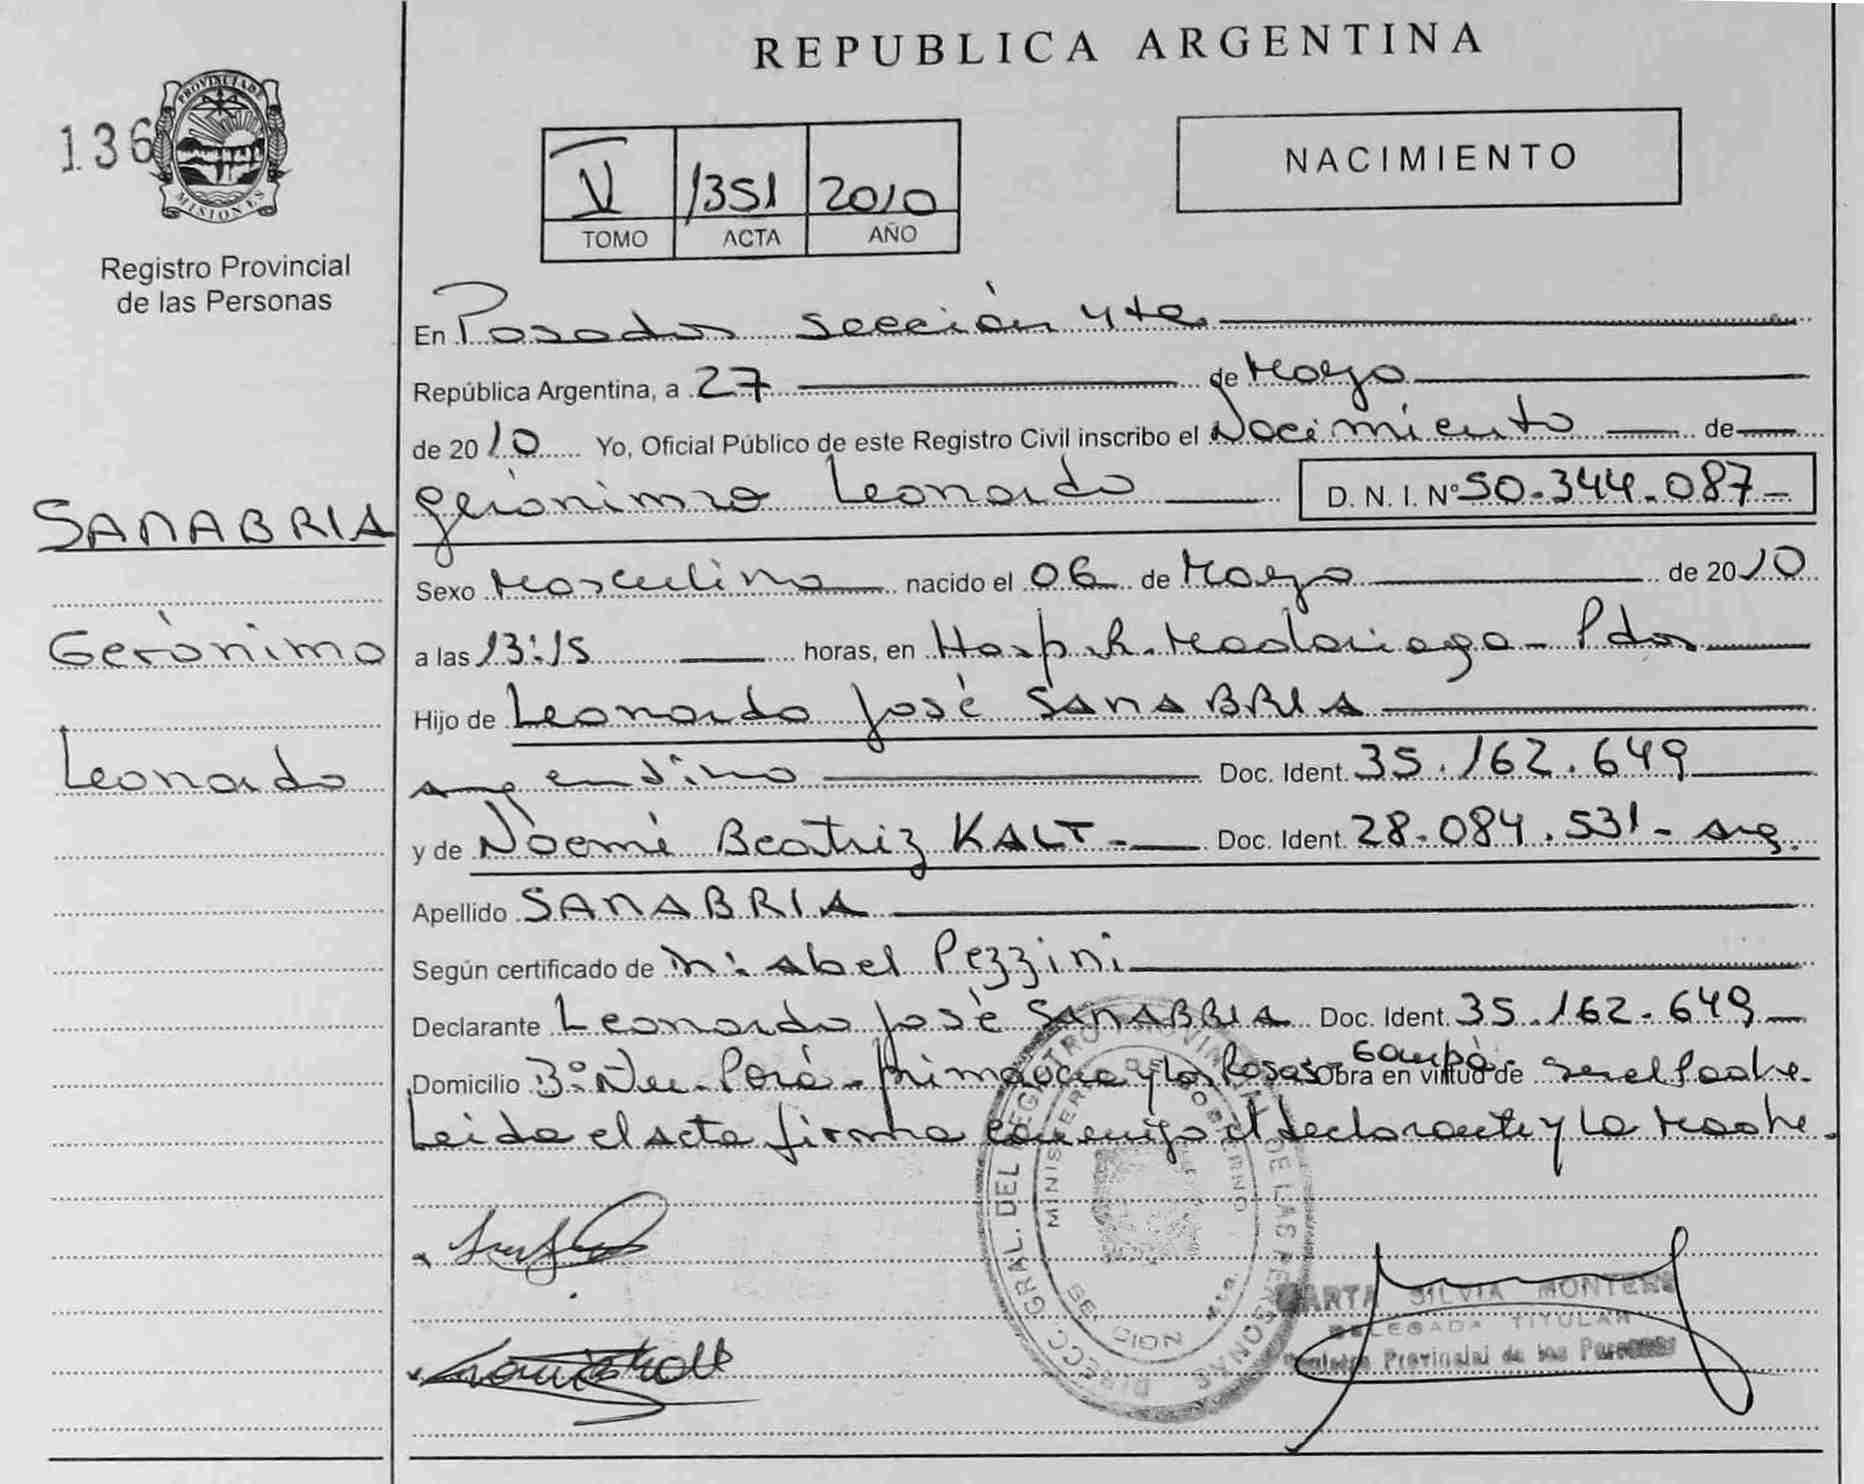 REPUBLICA ARGENTINA
136
PROVINCIA DE
MISIONES
Registro Provincial
de las Personas
V 1351 2010
TOMO ACTA AÑO
NACIMIENTO
En Posadas sección 4ta
República Argentina, a 27 de Mayo
de 2010 Yo, Oficial Público de este Registro Civil inscribo el Nacimiento de
Gerónimo Leonardo D. N. I. Nº 50.344.087-
SANABRIA
Gerónimo
Leonardo
Sexo Masculino nacido el 06 de Mayo de 2010
a las 13:15 horas, en Hosp. R. Madariaga - Pdas
Hijo de Leonardo José SANABRIA
argentino Doc. Ident. 35.162.649
y de Noemí Beatriz KALT - Doc. Ident. 28.084.531 - arg.
Apellido SANABRIA
Según certificado de M. Abel Pezzini
Declarante Leonardo José SANABRIA Doc. Ident. 35.162.649
Domicilio Bº Ñu Porá - Primavera y Los Rosas Garupá Obra en virtud de ser el Padre.
Leida el acta firma conmigo el declarante y la Madre.
DIRECC. GRAL. DEL REGISTRO PROVINCIAL DE LAS PERSONAS
MINISTERIO DE GOBIERNO
SECCION 4ta.
MARTA SILVIA MONTERO
DELEGADA TITULAR
Registro Provincial de las Personas